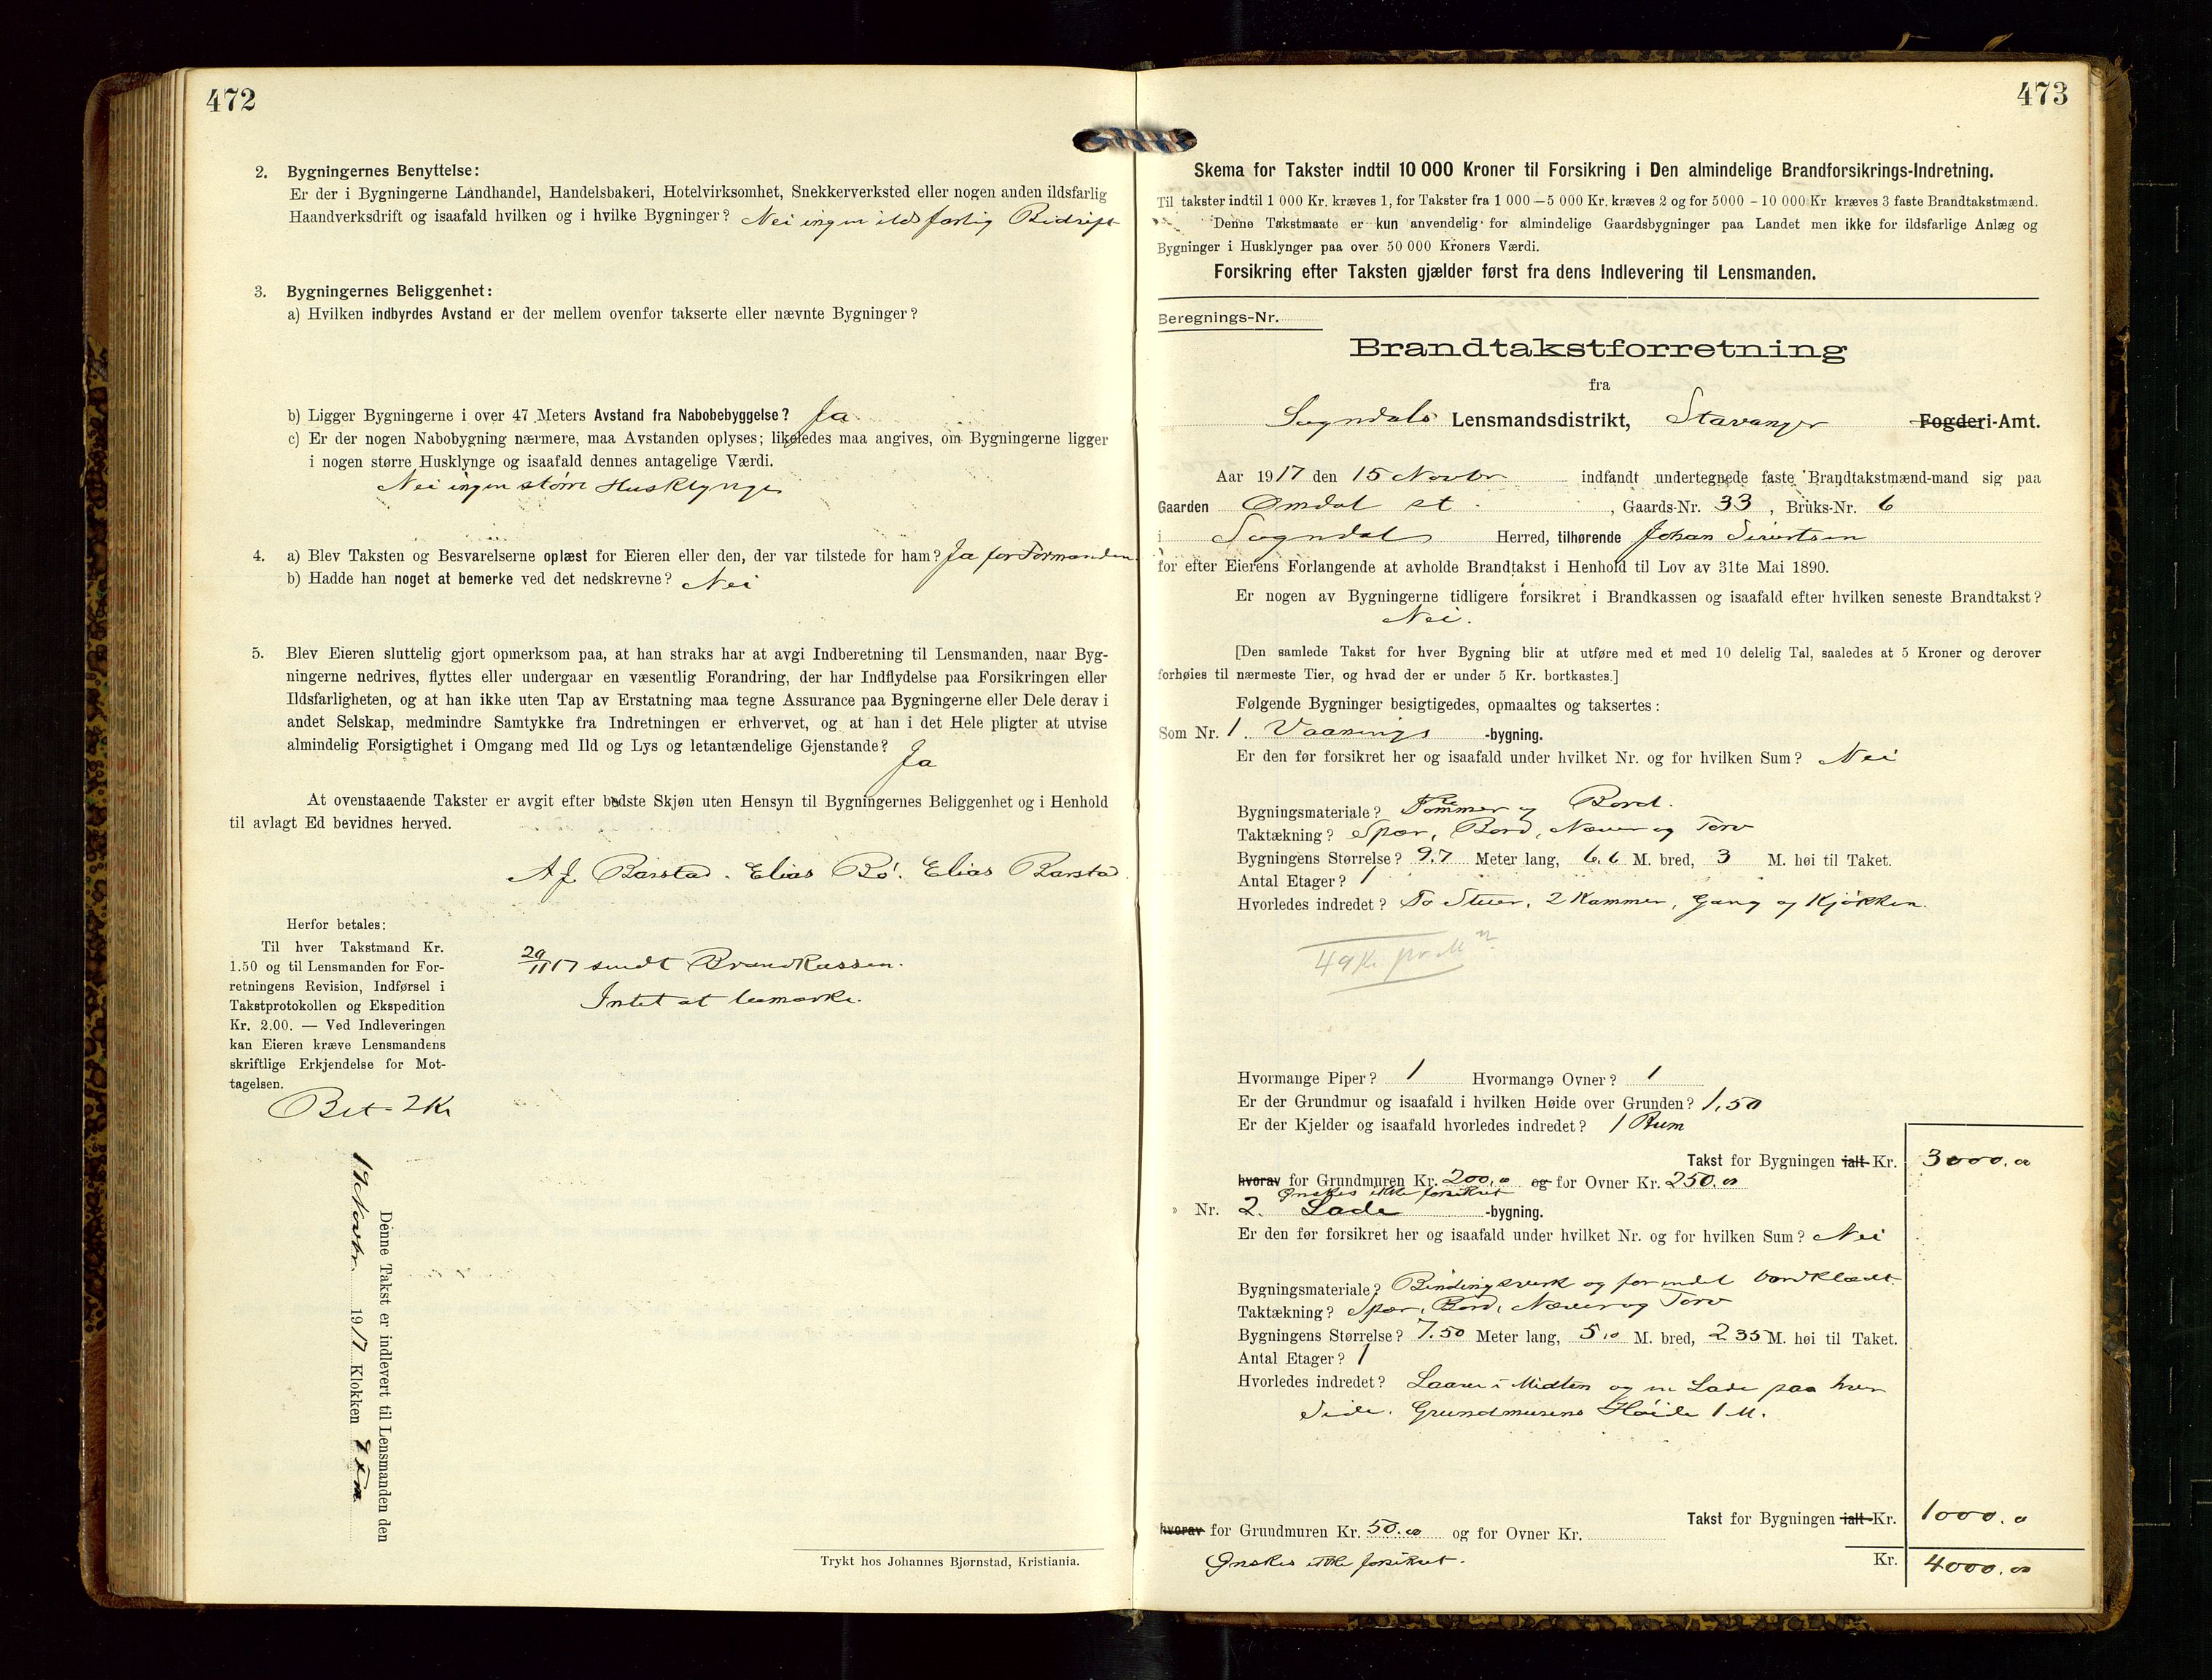 472
2. Bygningernes Benyttelse:
Er der i Bygningerne Landhandel, Handelsbakeri, Hotelvirksomhet, Snekkerverksted eller nogen anden ildsfarlig
Haandverksdrift og isaafald hvilken og i hvilke Bygninger? Nei ingen ildsfarlig Bedrift
3. Bygningernes Beliggenhet:
a) Hvilken indbyrdes Avstand er der mellem ovenfor takserte eller nævnte Bygninger?
b) Ligger Bygningerne i over 47 Meters Avstand fra Nabobebyggelse? Ja
c) Er der nogen Nabobygning nærmere, maa Avstanden oplyses; likeledes maa angives, om Bygningerne ligger
i nogen større Husklynge og isaafald dennes antagelige Værdi.
Nei ingen større Husklynge
4. a) Blev Taksten og Besvarelserne oplæst for Eieren eller den, der var tilstede for ham? Ja for Formanden
b) Hadde han noget at bemerke ved det nedskrevne? Nei
5. Blev Eieren sluttelig gjort opmerksom paa, at han straks har at avgi Indberetning til Lensmanden, naar Byg-
ningerne nedrives, flyttes eller undergaar en væsentlig Forandring, der har Indflydelse paa Forsikringen eller
Ildsfarligheten, og at han ikke uten Tap av Erstatning maa tegne Assurance paa Bygningerne eller Dele derav i
andet Selskap, medmindre Samtykke fra Indretningen er erhvervet, og at han i det Hele pligter at utvise
almindelig Forsigtighet i Omgang med Ild og Lys og letantændelige Gjenstande? Ja
At ovenstaaende Takster er avgit efter bedste Skjøn uten Hensyn til Bygningernes Beliggenhet og i Henhold
til avlagt Ed bevidnes herved.
A J Barstad. Elias Bö. Elias Barstad.
Herfor betales:
Til hver Takstmand Kr.
1.50 og til Lensmanden for For-
retningens Revision, Indførsel i
Takstprotokollen og Ekspedition
Kr. 2.00. — Ved Indleveringen
kan Eieren kræve Lensmandens
skriftlige Erkjendelse for Mot-
tagelsen.
Bet. 2 Kr
29/11 17 sendt Brandkassen.
Intet at bemærke.
Denne Takst er indlevert til Lensmanden den
19 Novbr. 1917 Klokken Fm
Trykt hos Johannes Bjørnstad, Kristiania.
473
Skema for Takster indtil 10 000 Kroner til Forsikring i Den almindelige Brandforsikrings-Indretning.
Til takster indtil 1 000 Kr. kræves 1, for Takster fra 1 000 – 5 000 Kr. kræves 2 og for 5000 – 10 000 Kr kræves 3 faste Brandtakstmænd.
Denne Takstmaate er kun anvendelig for almindelige Gaardsbygninger paa Landet men ikke for ildsfarlige Anlæg og
Bygninger i Husklynger paa over 50 000 Kroners Værdi.
Forsikring efter Taksten gjælder først fra dens Indlevering til Lensmanden.
Beregnings-Nr.
Brandtakstforretning
fra
Sogndals Lensmandsdistrikt, Stavanger Fogderi-Amt.
Aar 1917 den 15 Novbr indfandt undertegnede faste Brandtakstmænd-mand sig paa
Gaarden Omdal et , Gaards-Nr. 33 , Bruks-Nr. 6
i Sogndal Herred, tilhørende Johan Sivertsen
for efter Eierens Forlangende at avholde Brandtakst i Henhold til Lov av 31te Mai 1890.
Er nogen av Bygningerne tidligere forsikret i Brandkassen og isaafald efter hvilken seneste Brandtakst?
Nei.
[Den samlede Takst for hver Bygning blir at utføre med et med 10 delelig Tal, saaledes at 5 Kroner og derover
forhøies til nærmeste Tier, og hvad der er under 5 Kr. bortkastes.]
Følgende Bygninger besigtigedes, opmaaltes og taksertes:
Som Nr. 1. Vaanings -bygning.
Er den før forsikret her og isaafald under hvilket Nr. og for hvilken Sum? Nei
Bygningsmateriale? Tømmer og Bord.
Taktækning? Spær, Bord, Næver og Torv
Bygningens Størrelse? 9.7 Meter lang, 6.6 M. bred, 3 M. høi til Taket.
Antal Etager? 1
Hvorledes indredet? To Stuer, 2 Kammer, Gang og Kjøkken.
49 Kr. pr M²
Hvormange Piper? 1 Hvormange Ovner? 1
Er der Grundmur og isaafald i hvilken Høide over Grunden? 1,50
Er der Kjelder og isaafald hvorledes indredet? 1 Rum
Takst for Bygningen ialt Kr. 3000.00
hvorav for Grundmuren Kr. 200.00 og for Ovner Kr. 250.00
Ønskes ikke forsikret
Nr. 2. Lade -bygning.
Er den før forsikret her og isaafald under hvilket Nr. og for hvilken Sum? Nei
Bygningsmateriale? Bindingsverk og forøvdet bordklædt
Taktækning? Spær, Bord, Næver og Torv
Bygningens Størrelse? 7.50 Meter lang, 5,10 M. bred, 2 35 M. høi til Taket.
Antal Etager? 1
Hvorledes indredet? Laave i Midten og en Lade paa hver
Side. Grundmurens Høide 1 M.
Takst for Bygningen ialt Kr. 1000.0
hvorav for Grundmuren Kr. 50.00 og for Ovner Kr.
Ønskes ikke forsikret.
Kr. 4000.00